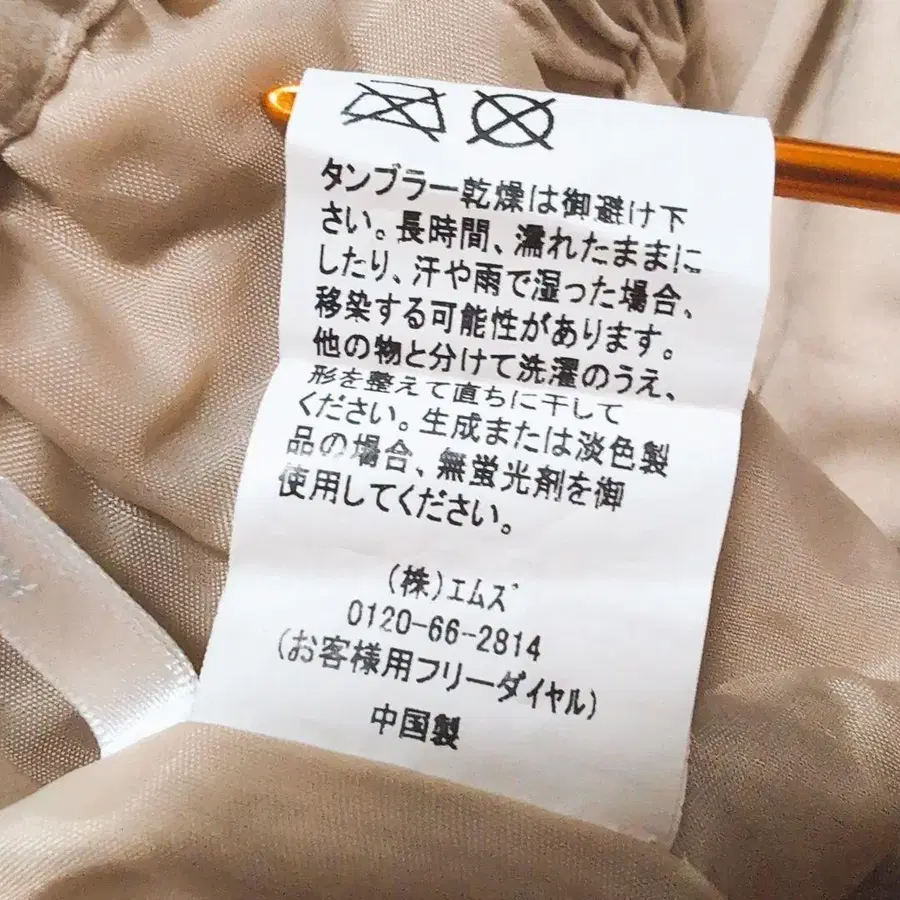 タンブラー乾燥は御避け下
さい。長時間、濡れたままに
したり、汗や雨で湿った場合、
移染する可能性があります。
他の物と分けて洗濯のうえ、
形を整えて直ちに干して
ください。生成または淡色製
品の場合、無蛍光剤を御
使用してください。
(株)エムズ
0120-66-2814
(お客様用フリーダイヤル)
中国製